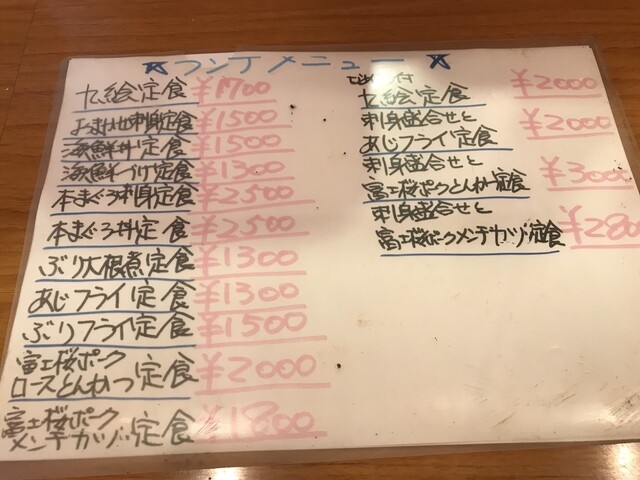 ★ランチメニュー★
九絵定食 ¥1700
おまかせ刺身定食 ¥1500
海鮮丼定食 ¥1500
海鮮づけ定食 ¥1300
本まぐろ刺身定食 ¥2500
本まぐろ丼定食 ¥2500
ぶり大根煮定食 ¥1300
あじフライ定食 ¥1300
ぶりフライ定食 ¥1500
富士桜ポーク
ロースとんかつ定食 ¥2000
富士桜ポーク
メンチカツ定食 ¥1800
九絵定食 ¥2000
刺身盛合せと
あじフライ定食 ¥2000
刺身盛合せと
富士桜ポークとんかつ定食 ¥300
刺身盛合せと
富士桜ポークメンチカツ定食 ¥280